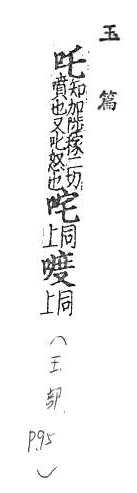 玉篇
吒知加陟稼二切
噴也又叱怒也
咤同上喥同上
（王部 P.95）